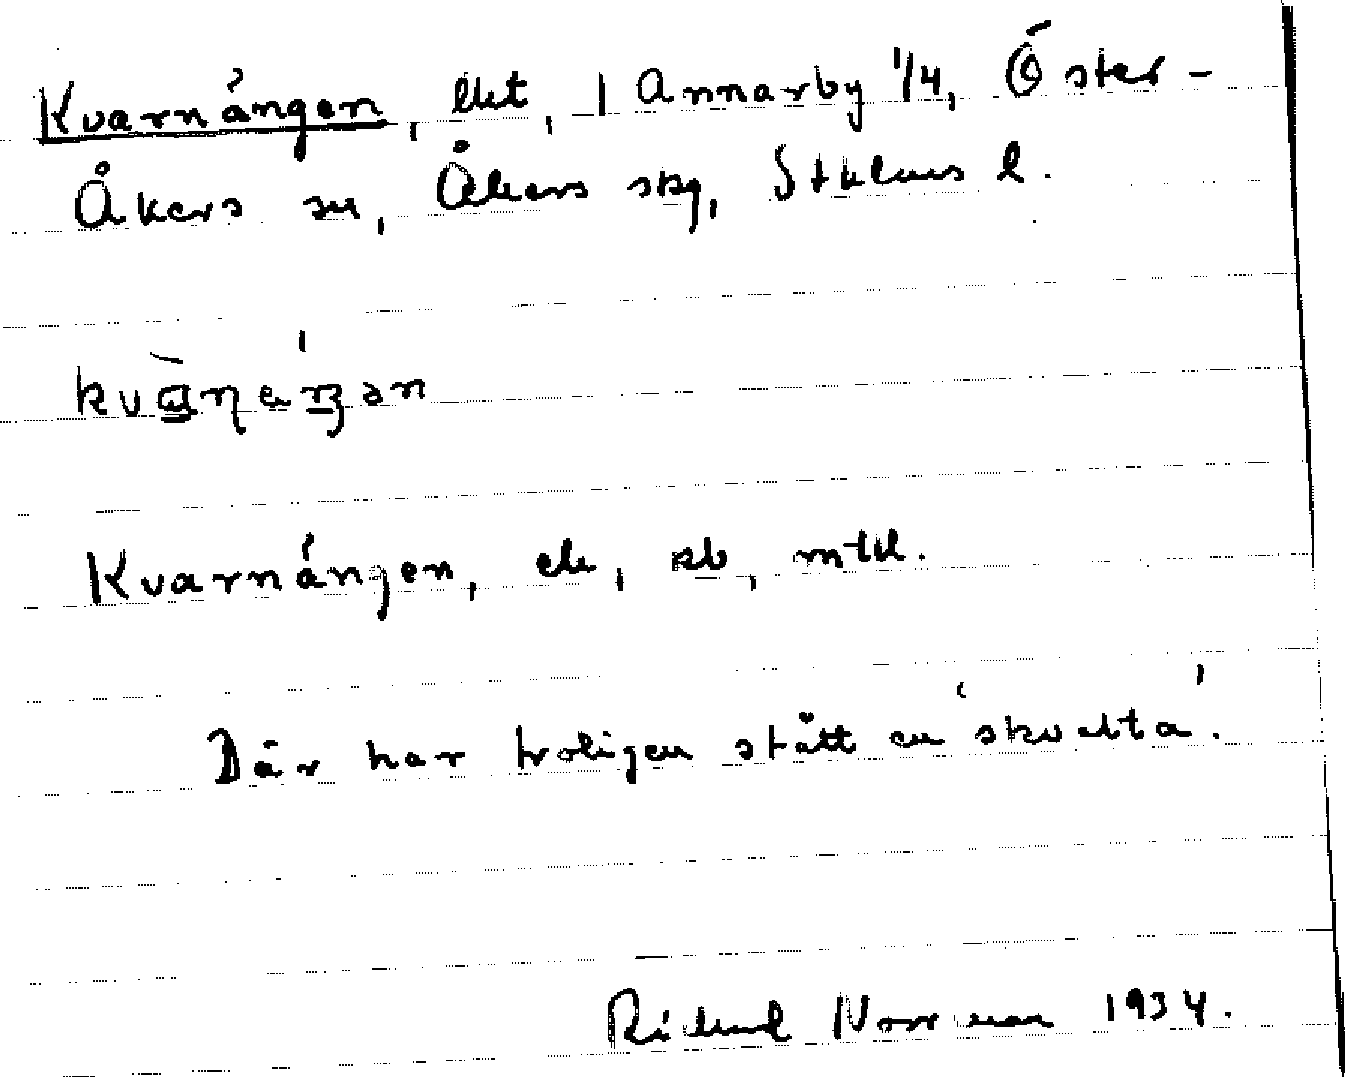 Kvarnängen, lht, 1 Annarby 1/4, Öster-
Åkers sn, Åkers skg, Sthlms l.
kvaɳaŋən
Kvarnängen, ek, sb, mtkl.
Där har troligen stått en 'skvalta'.
Rickard Norrman 1934.